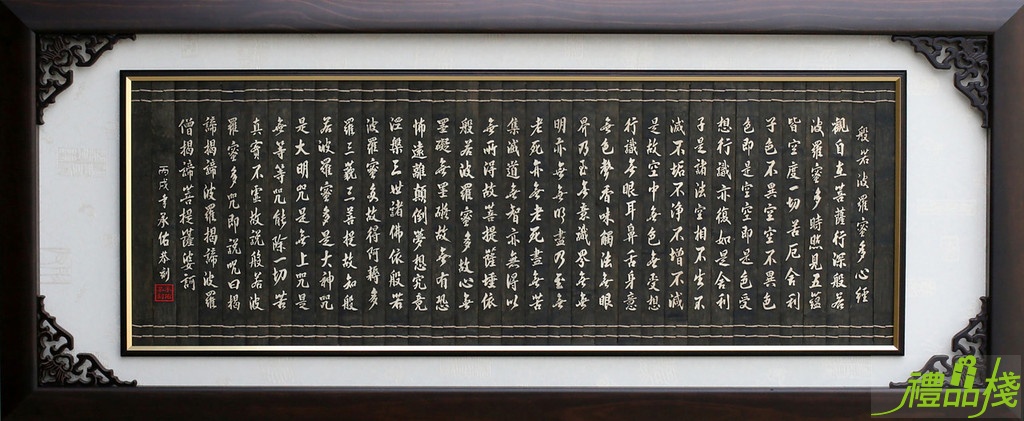 般若波羅蜜多心經
觀自在菩薩行深般若
波羅蜜多時照見五蘊
皆空度一切苦厄舍利
子色不異空空不異色
色即是空空即是色受
想行識亦復如是舍利
子是諸法空相不生不
滅不垢不淨不增不減
是故空中無色無受想
行識無眼耳鼻舌身意
無色聲香味觸法無眼
界乃至無意識界無無
明亦無無明盡乃至無
老死亦無老死盡無苦
集滅道無智亦無得以
無所得故菩提薩埵依
般若波羅蜜多故心無
罣礙無罣礙故無有恐
怖遠離顛倒夢想究竟
涅槃三世諸佛依般若
波羅蜜多故得阿耨多
羅三藐三菩提故知般
若波羅蜜多是大神咒
是大明咒是無上咒是
無等等咒能除一切苦
真實不虛故說般若波
羅蜜多咒即說咒曰揭
諦揭諦波羅揭諦波羅
僧揭諦菩提薩婆訶
丙戌年承佑恭刻
禮品棧